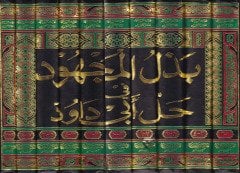 بذل المجهود
في
حل أبي داود